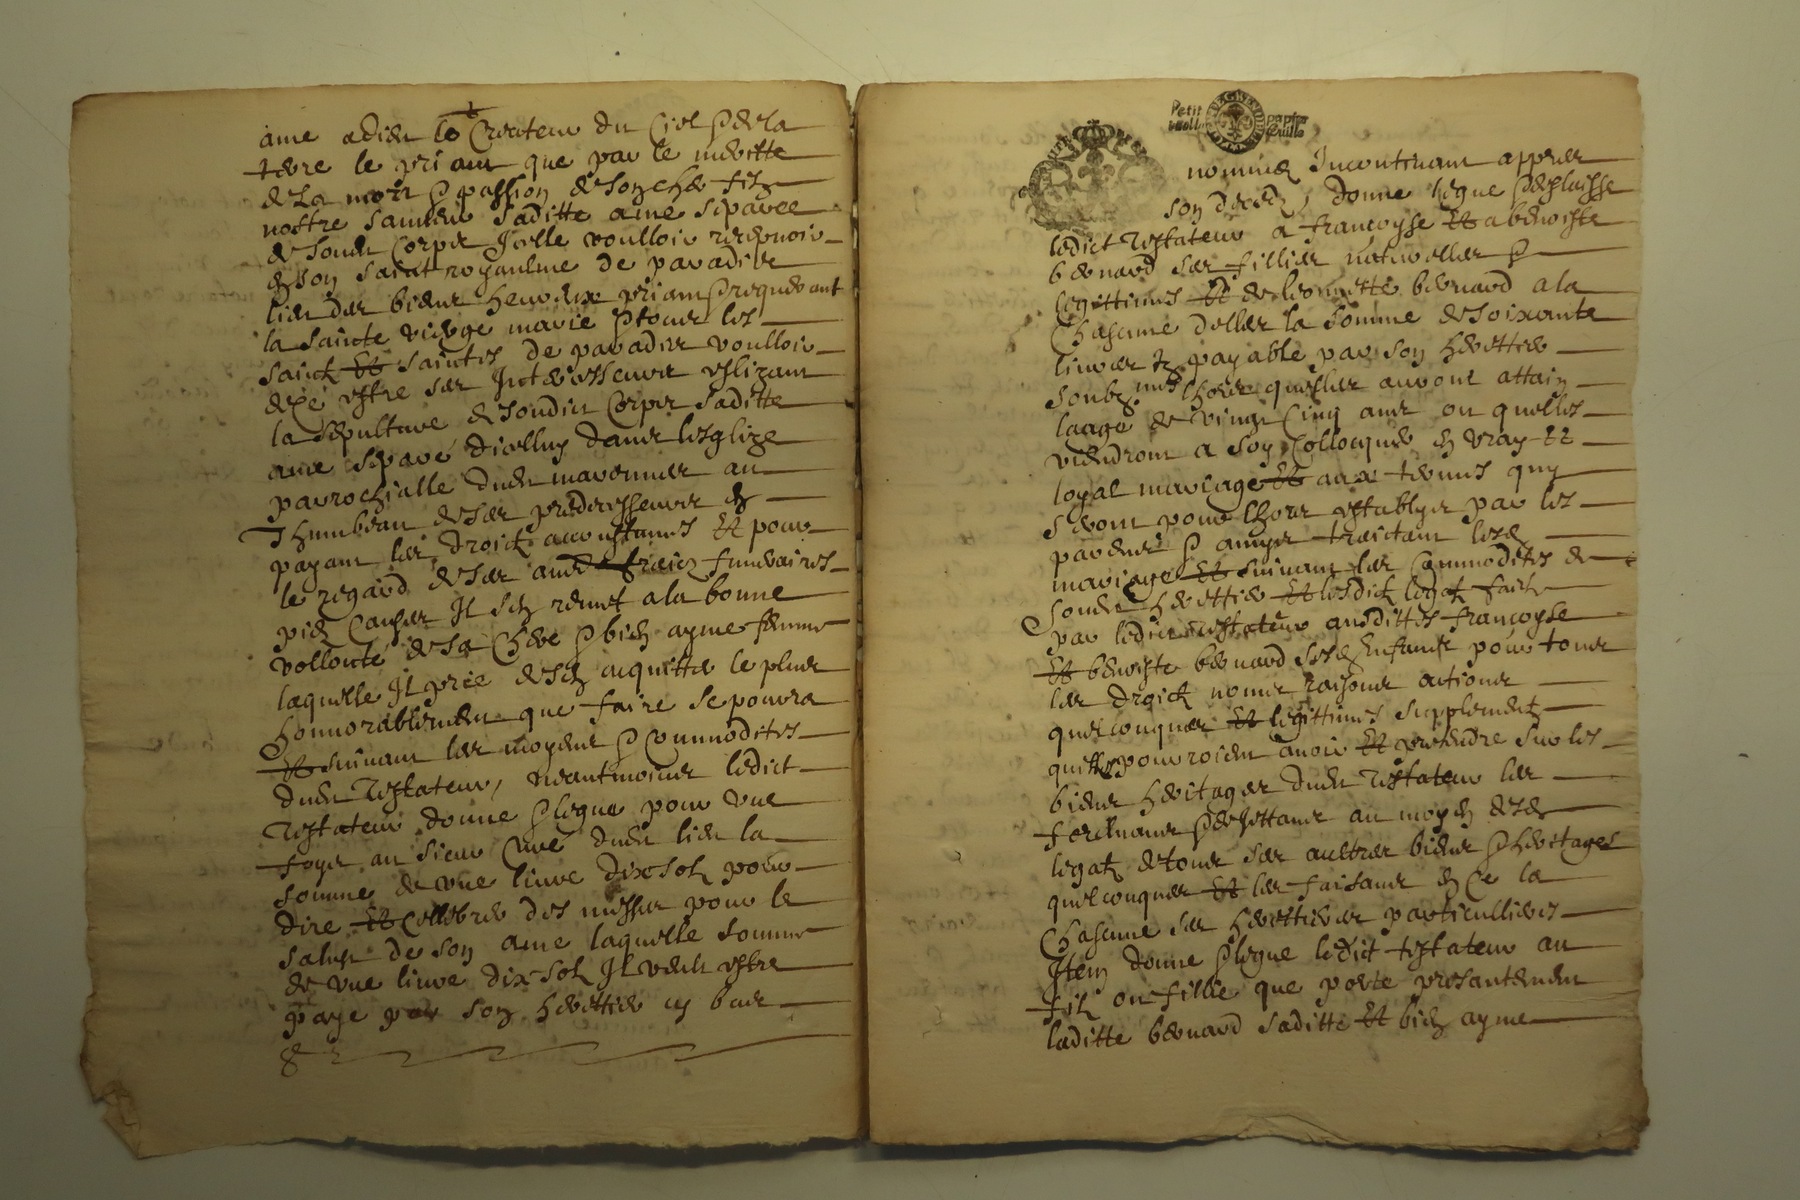 ame a dieu le Createur du Ciel & de la
terre le priant que par le meritte
de La mort & passion de son cher filz
nostre sauveur saditte ame separee
de sondit Corps Icelle voulloir recepvoir
en son saint royaulme de paradis
lieu des bien heureux priant & requerant
la sainte vierge marie & tous les
sainctz Et saintes de paradis voulloir
de ce estre ses Intercesseurs eslizant
la sepulture de sondict Corps saditte
ame separé dicelluy dans lesglize
parrochialle dudit
Thumbeau de ses predecesseurs en
payant les droictz accoustumés Et pour
le regard de ses fraiez funeraires
piez Causes Il sen remet a la bonne
vollonté de sa Chere & bien ayme femme
laquelle Il prie de sen acquitter le plus
honnorablement que faire se pourra
Et suivant les moyens & commodites
dudit Testateur, neantmoins ledict
Testateur donne & legue pour une
foys au sieur Curé dudit lieu la
somme de une livre dix solz pour
dire Et Cellebrer des messes pour le
salut de son ame laquelle somme
de une livre dix solz Il veult estre
paye par son herittier cy bas
Petit papier
feuille
nommez Incontinant appres
son deces, donne legue & delaisse
ledict Testateur a francoyse Et a benoiste
bernard ses filles naturelles &
legittimes Et de leonnette bernard a la
Chascune delles la somme de soixante
livres tz payable par son herittier
soubz nmé lhors quelles auront attain
laage de vingt Cinq ans ou quelles
viendront a soy Collocquer en vray Et
loyal mariage Et aux termes quy
seront pour lhors establys par les
parens & amys traictant lesd
mariages Et suivant les Commodites de
sondit herittier Et lesdictz legatz faictz
par ledict testateur ausdittes francoyse
Et benoiste bernard sesd Enfants pour tous
les droictz noms raisons actions
quelconques Et legittimes supplementz
quelles pourroient avoir Et pretendre sur les
biens heritages dudit Testateur les
forcluant & desjettant au moyen desd
legatz de tous ses aultres biens & heritages
quelconques Et les faisant en Ce la
Chascune ses herittieres particullieres
Item donne & legue ledict testateur au
filz ou fillie que porte presantement
laditte bernard saditte Et bien ayme